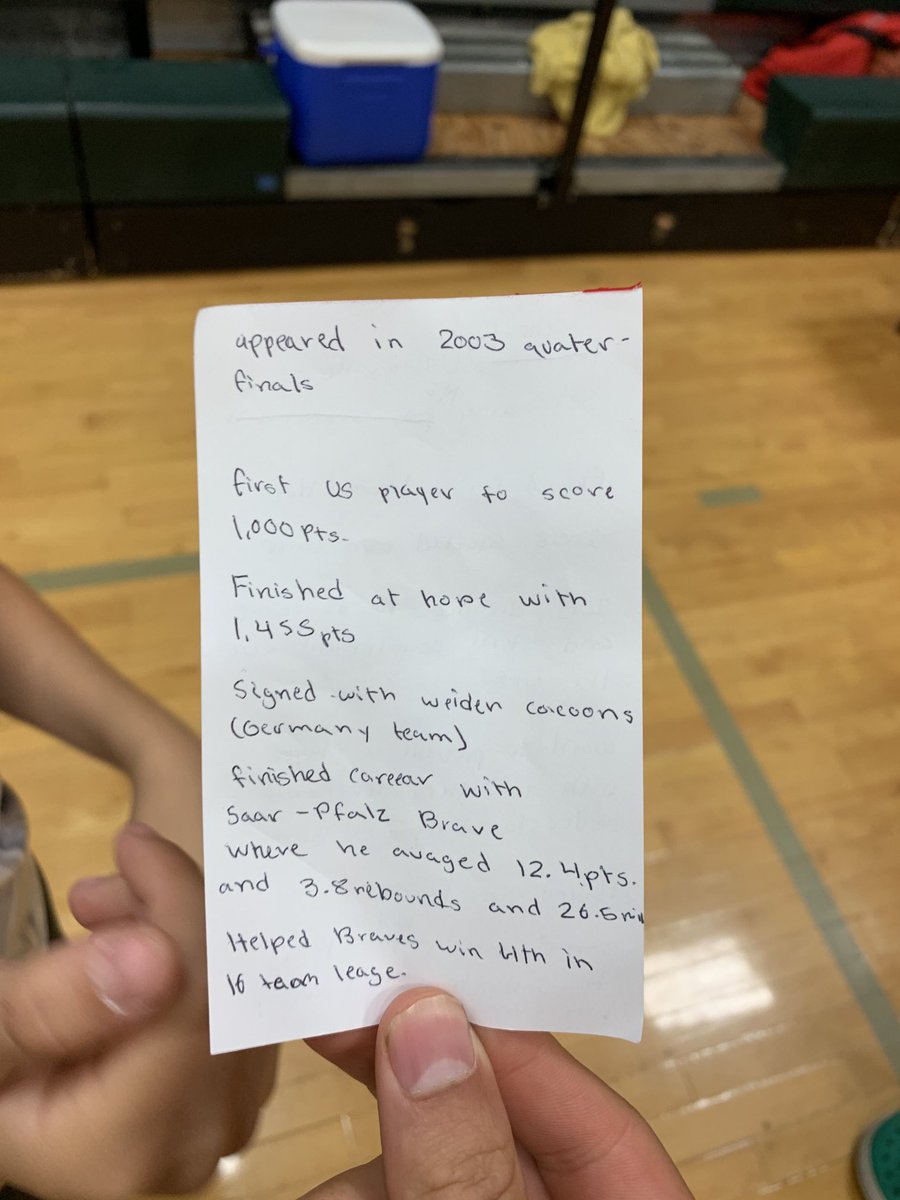 appeared in 2003 quater-
finals
first US player to score
1,000 pts.
Finished at hope with
1,455 pts
Signed with weiden cocoons
(Germany team)
finished careear with
Saar-Pfalz Brave
where he avaged 12.4pts.
and 3.8 rebounds and 26.5 min
Helped Braves win 4th in
16 team leage.